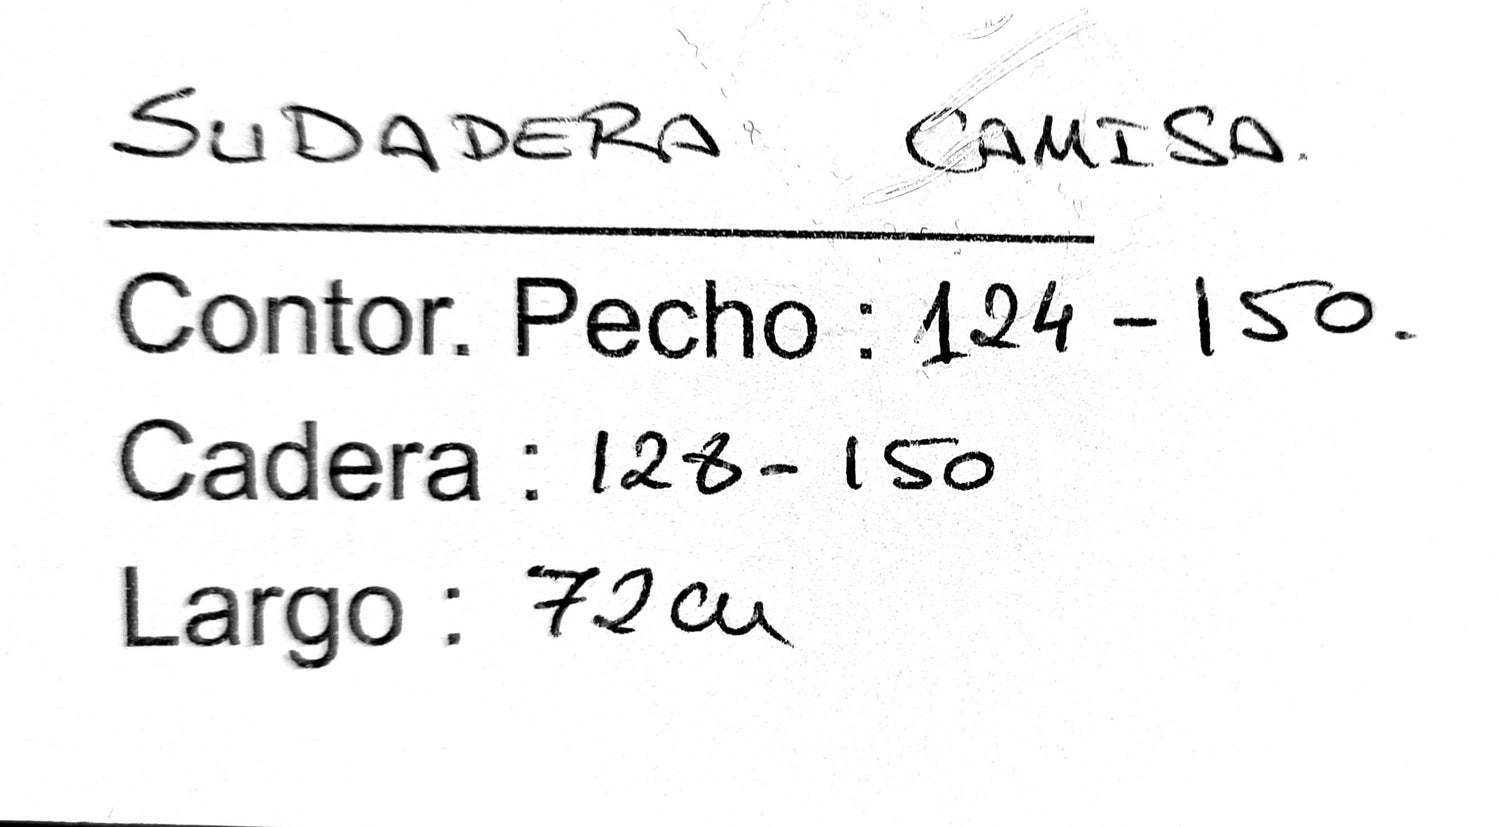 SUDADERA CAMISA.
Contor. Pecho : 124 - 150.
Cadera : 128 - 150
Largo : 72 cm